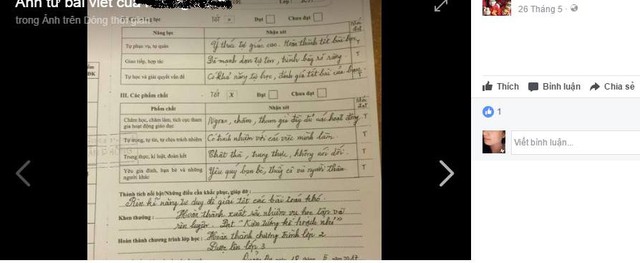 Ảnh từ bài viết của
trong Ảnh trên Dòng thời gian
26 Tháng 5
Thích Bình luận Chia sẻ
1
Viết bình luận...
Tốt x Đạt Chưa đạt
Năng lực Nhận xét
Tự phục vụ, tự quản Ý thức tự giác cao. Hoàn thành tốt bài học T
Giao tiếp, hợp tác Đã mạnh dạn tự tin, trình bày rõ ràng T
Tự học và giải quyết vấn đề Có khả năng tự học, đánh giá tốt bài của bạn T
III. Các phẩm chất Tốt x Đạt Chưa đạt
Phẩm chất Nhận xét
Chăm học, chăm làm, tích cực tham gia hoạt động giáo dục Ngoan, chăm, tham gia đầy đủ các hoạt động T
Tự trọng, tự tin, tự chịu trách nhiệm Có trách nhiệm với các việc mình làm T
Trung thực, kỉ luật, đoàn kết Thật thà, trung thực, không nói dối. T
Yêu gia đình, bạn bè và những người khác Yêu quý bạn bè, thầy cô và người thân T
Thành tích nổi bật/Những điều cần khắc phục, giúp đỡ:
Rèn kĩ năng tư duy để giải tốt các bài toán khó.
Khen thưởng: Hoàn thành xuất sắc nhiệm vụ học tập và
rèn luyện. Đạt "Kiện tướng kế hoạch nhỏ"
Hoàn thành chương trình lớp học: Hoàn thành chương trình lớp 2
Được lên lớp 3